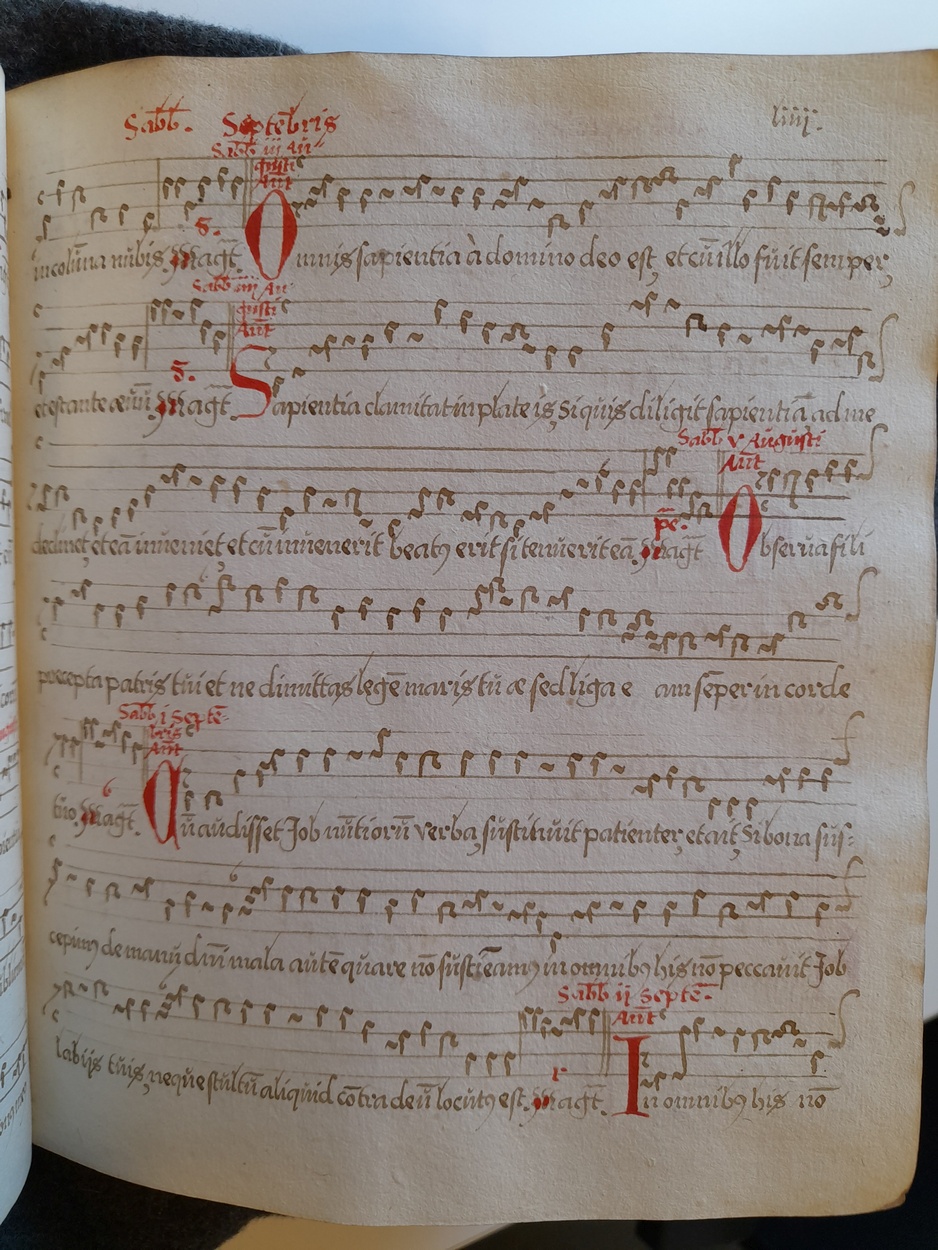 Sabb. Septēbris liiij.
Sabb iij Au-
gusti
Ant
in colūna nubis. Magt. Omnis sapientia à domino deo est, et cū illo fuit semper,
Sabb iiij Au-
gusti
Ant
et est ante ævū. Magt. Sapientia clamitat in plateis, Si quis diligit sapientiā ad me
Sabb v Augusti
Ant
declinet, et eā inveniet, et cū invenerit beatꝯ erit si tenuerit eā. Magt Observa fili
præcepta patris tui et ne dimittas legē matris tuæ sed liga eam sēper in corde
Sabb i Septē-
bris
Ant
tuo. Magt. Qū audisset Job nūtiorū verba, sustinuit patienter, et ait, Si bona sus-
cepimꝯ de manu dnī mala autē quare nō sustīeamꝯ in omnibꝯ his nō peccavit Job
Sabb ij Septē-
Ant
labijs tuis, neque stultū aliquid cōtra deū locutꝯ est. Magt. In omnibꝯ his nō